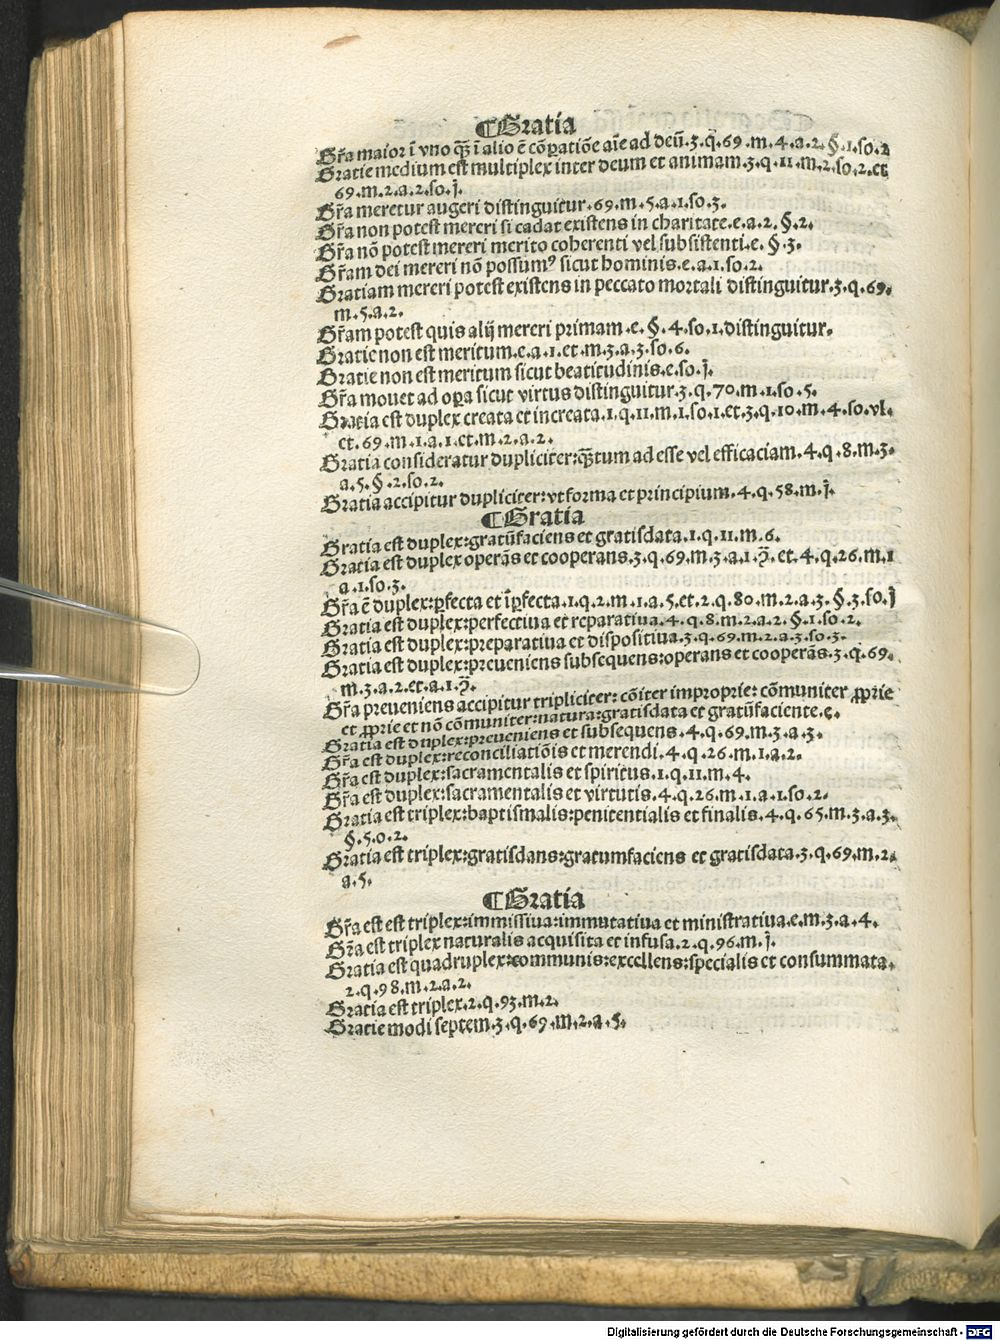 ¶Gratia
Gr̃a maior ĩ vno qᷓ ĩ alio ẽ cõꝑatiõe aĩe ad deũ.3.q̃.69.m.4.a.2.§.1.so.2
Gratie medium est multiplex inter deum et animam.3.q.11.m.2.so.2.et
69.m.2.a.2.so.j̃.
Gr̃a meretur augeri distinguitur.69.m.5.a.1.so.3.
Gr̃a non potest mereri si cadat existens in charitate.e.a.2.§.2.
Gr̃a nõ potest mereri merito coherenti vel subsistenti.e.§.3.
Gr̃am dei mereri nõ possumꝰ sicut hominis.e.a.1.so.2.
Gratiam mereri potest existens in peccato mortali distinguitur.3.q.69.
m.5.a.2.
Gr̃am potest quis alij mereri primam.e.§.4.so.1.distinguitur.
Gratie non est meritum.e.a.1.et.m.3.a.3.so.6.
Gratie non est meritum sicut beatitudinis.e.so.j̃.
Gr̃a mouet ad oꝑa sicut virtus distinguitur.3.q.70.m.1.so.5.
Gratia est duplex creata et increata.1.q.11.m.1.so.1.et.3.q.10.m.4.so.vl.
et.69.m.1.a.1.et.m.2.a.2.
Gratia consideratur dupliciter:qᷓtum ad esse vel efficaciam.4.q.8.m.3.
a.5.§.2.so.2.
Gratia accipitur dupliciter:vt forma et principium.4.q.58.m.j̃.
¶Gratia
Gratia est duplex:gratũfaciens et gratisdata.1.q.11.m.6.
Gratia est duplex operãs et cooperans.3.q.69.m.3.a.1.ꝙ̃.et.4.q.26.m.1
a.1.so.3.
Gr̃a ẽ duplex:ꝑfecta et ĩꝑfecta.1.q.2.m.1.a.5.et.2.q.80.m.2.a.3.§.3.so.j̃
Gratia est duplex:perfectiua et reparatiua.4.q.8.m.2.a.2.§.1.so.2.
Gratia est duplex:preparatiua et dispositiua.3.q.69.m.2.a.3.so.3.
Gratia est duplex:preueniens subsequens:operans et cooperãs.3.q.69.
m.3.a.2.et.a.1.ꝙ̃.
Gr̃a preueniens accipitur tripliciter:cõiter improprie:cõmuniter ꝓprie
et ꝓprie et nõ cõmuniter:natura:gratisdata et gratũfaciente.e.
Gratia est duplex:preueniens et subsequens.4.q.69.m.3.a.3.
Gr̃a est duplex:reconciliatiõis et merendi.4.q.26.m.1.a.2.
Gr̃a est duplex:sacramentalis et spiritus.1.q.11.m.4.
Gr̃a est duplex:sacramentalis et virtutis.4.q.26.m.1.a.1.so.2.
Gratia est triplex:baptismalis:penitentialis et finalis.4.q.65.m.3.a.3.
§.5.o.2.
Gratia est triplex:gratisdans:gratumfaciens et gratisdata.3.q.69.m.2.
a.5.
¶Gratia
Gr̃a est est triplex:immissiua:immutatiua et ministratiua.e.m.3.a.4.
Gr̃a est triplex naturalis acquisita et infusa.2.q.96.m.j̃.
Gratia est quadruplex:communis:excellens:specialis et consummata.
2.q.98.m.2.a.2.
Gratia est triplex.2.q.93.m.2.
Gratie modi septem.3.q.69.m.2.a.5.
Digitalisierung gefördert durch die Deutsche Forschungsgemeinschaft - DFG